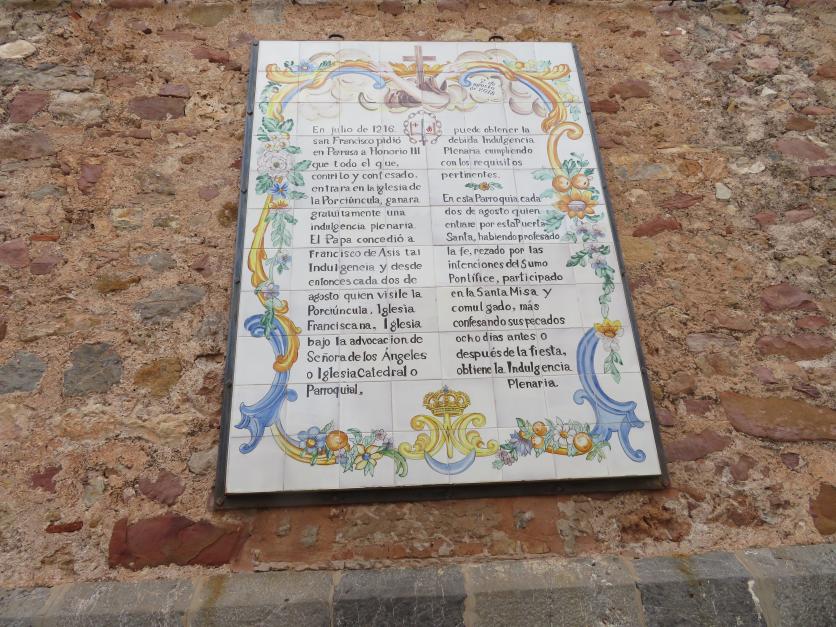 2 de
agosto
de 2018
En julio de 1216.
san Francisco pidió
en Perusa a Honorio III
que todo el que,
contrito y confesado,
entrara en la iglesia de
la Porciúncula, ganara
gratuitamente una
indulgencia plenaria.
El Papa concedió a
Francisco de Asís tal
Indulgencia y desde
entonces cada dos de
agosto quien visite la
Porciúncula, Iglesia
Franciscana, Iglesia
bajo la advocación de
Señora de los Ángeles
o Iglesia Catedral o
Parroquial,
puede obtener la
debida Indulgencia
Plenaria cumpliendo
con los requisitos
pertinentes.
En esta Parroquia cada
dos de agosto quien
entrare por esta Puerta
Santa, habiendo profesado
la fe, rezado por las
intenciones del Sumo
Pontífice, participado
en la Santa Misa y
comulgado, más
confesando sus pecados
ocho días antes o
después de la fiesta,
obtiene la Indulgencia
Plenaria.